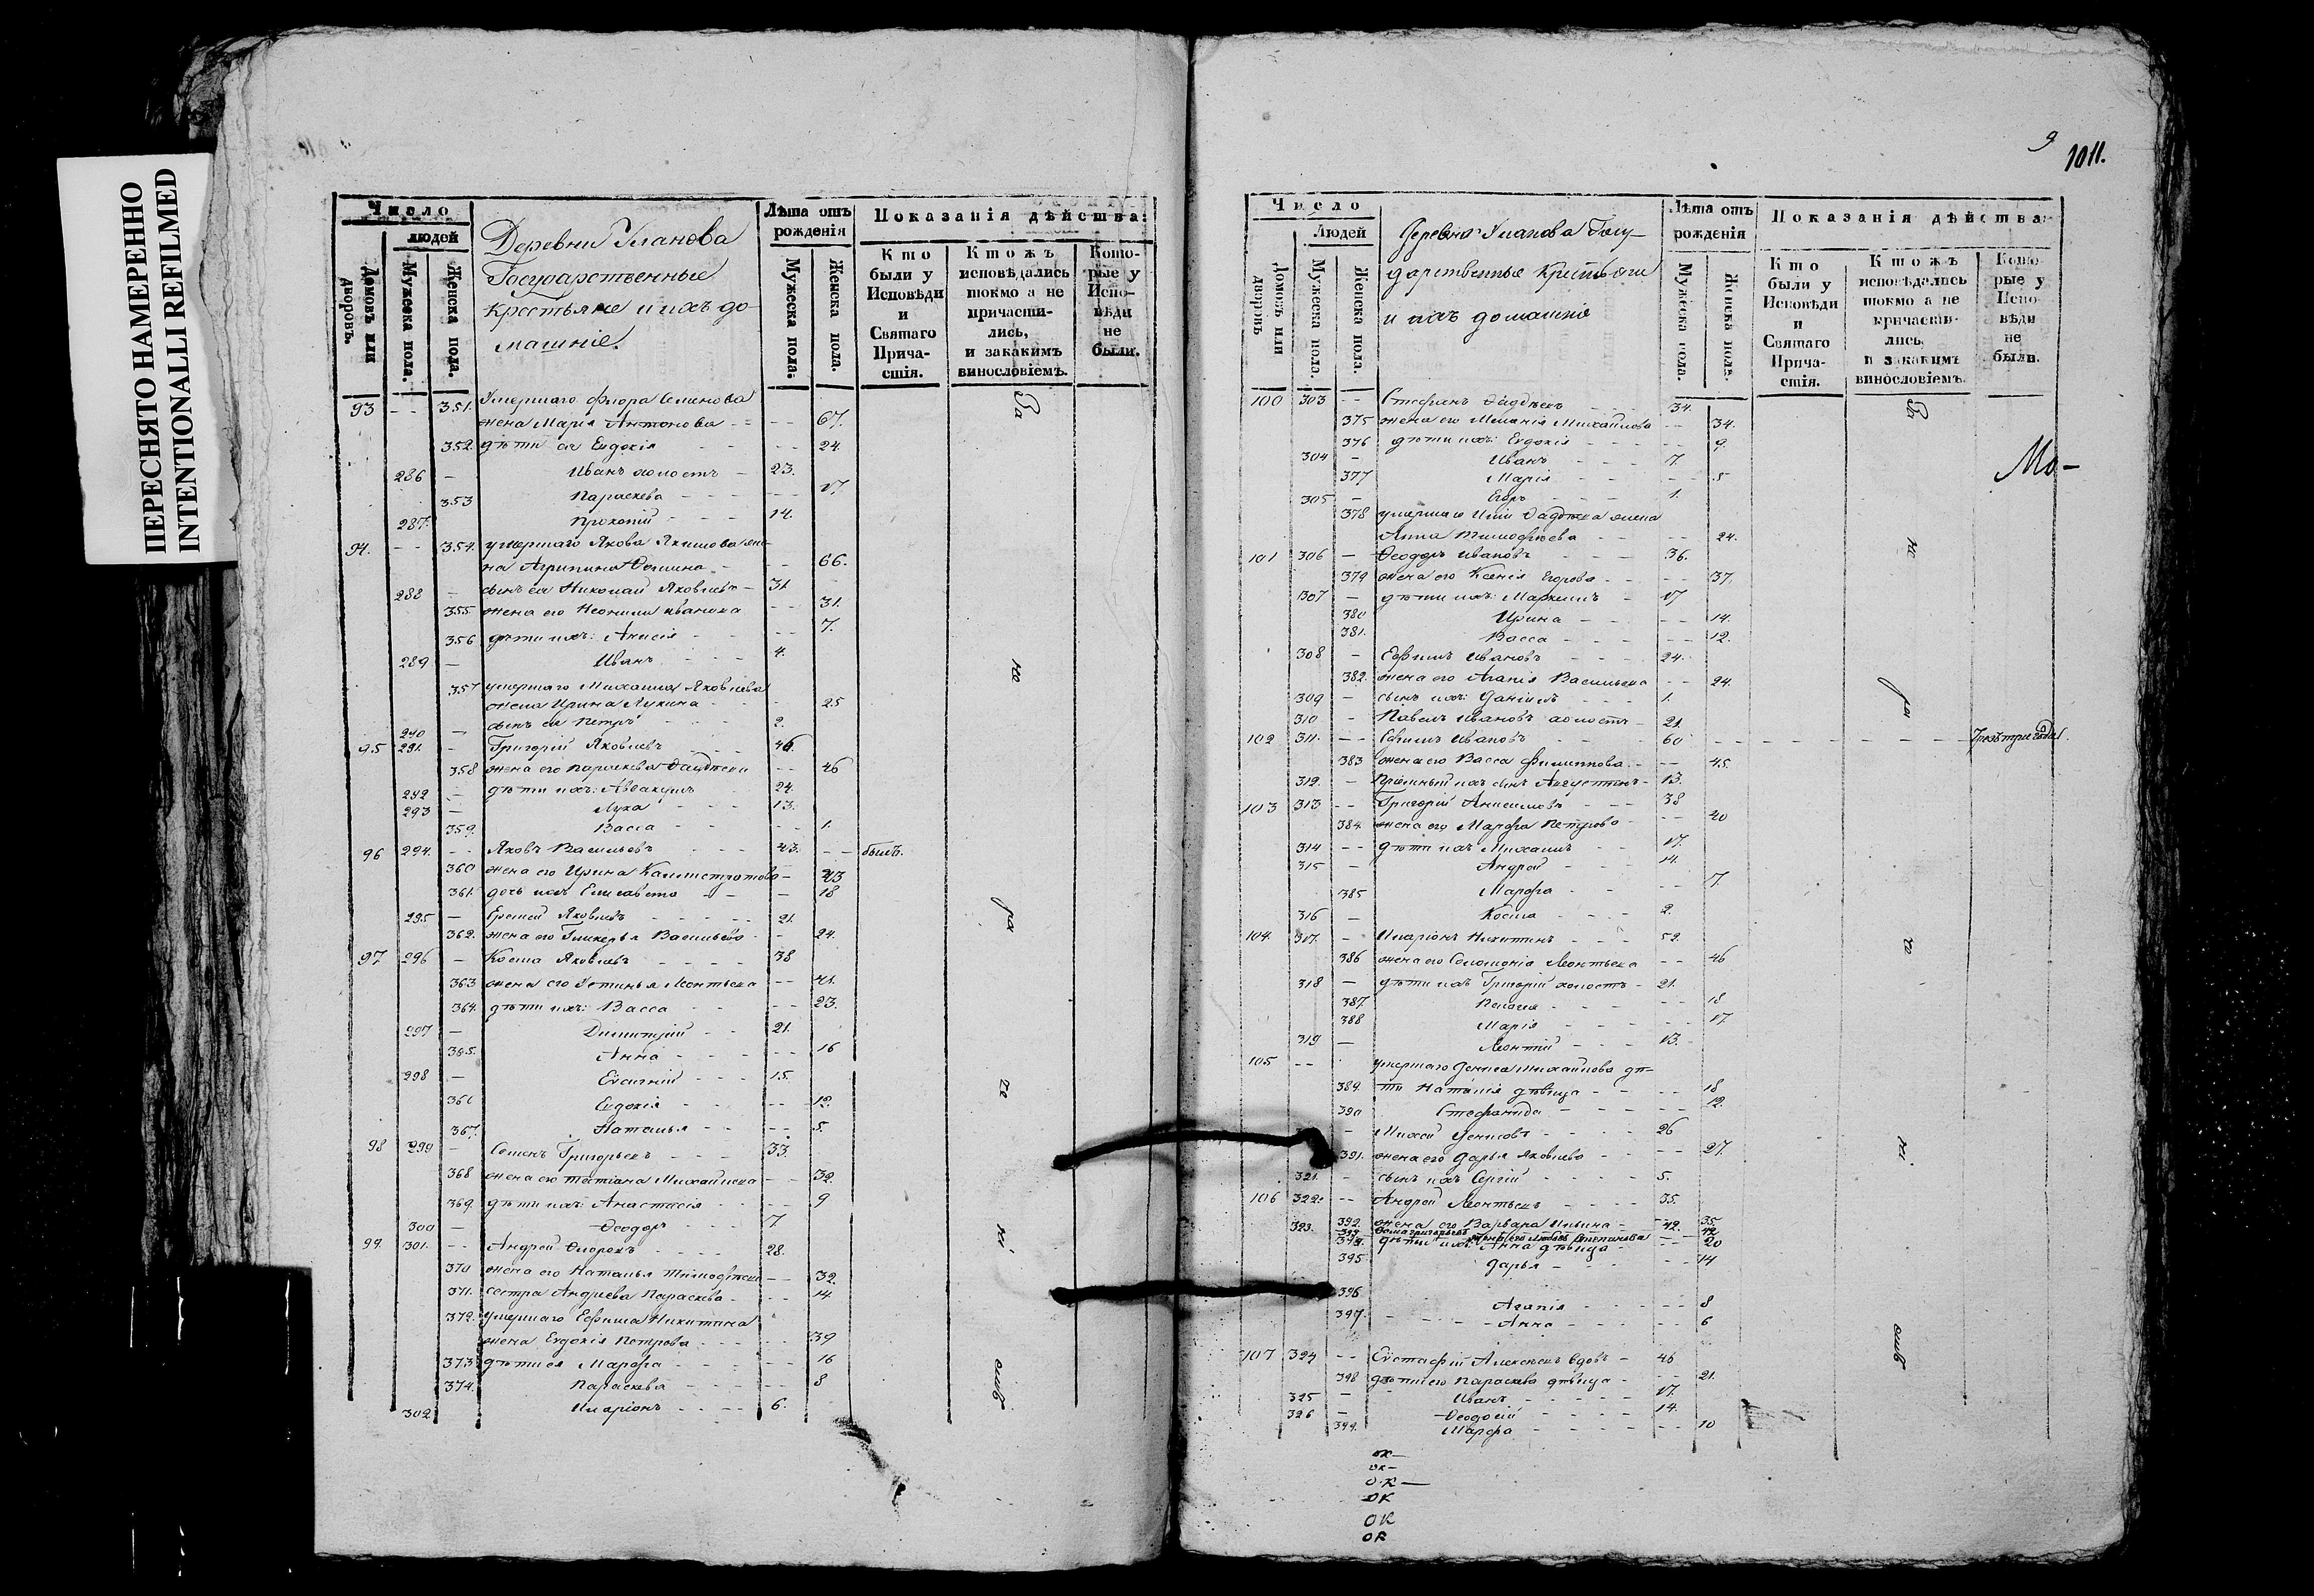 ПЕРЕСНЯТО НАМЕРЕННО
INTENTIONALLI REFILMED
Число
людей
Домовъ или дворовъ.
Мужеска пола.
Женска пола.
Деревни Уланова
Государственные
крестьяне и ихъ до-
машніе.
Лѣта отъ рожденія
Мужеска пола.
Женска пола.
Показанія дѣйства:
Кто были у Исповѣди и Святаго Причастія.
Ктожъ исповѣдались токмо а не причастились, и закакимъ винословіемъ.
Которые у Исповѣди не были.
93 - - 351. Умершаго Флора Семенова
жена Марія Антонова - - 67.
352. дѣти ея Евдокія 24.
286 - Иванъ холостъ - 23.
353 Параскева - - - 17
287. Прокопій - - - 14.
94. - - 354. умершаго Якова Якимова же-
на Агрипина Ѳомина - 66.
288 - сынъ ея Николай Яковлевъ - 31
355. жена его Неонила Иванова - - 31.
356 дѣти ихъ: Анисія - - 7.
289 - Иванъ - - - 4.
357 умершаго Михаила Яковлева
жена Ирина Лукина - - 25
290 - сынъ ея Петръ - - 2.
95 291. - Григорій Яковлевъ 46
358 жена его Параскева Фадѣева - - 46
292 - дѣти ихъ: Аввакумъ 24.
293 - Лука - - - 13.
359. Васса - - - 1.
96 294. - - Яковъ Васильевъ - - 43. - - былъ.
360 жена его Ирина Каллистратова - 43
361. дочь ихъ Елисавета - - 18
295 - Ермей Яковлевъ - - - 21.
362. жена его Гликерья Васильева - 24.
97 296 - Косма Яковлевъ - - - 38
363 жена его Устинья Леонтьева - - 41.
364. дѣти ихъ: Васса - - 23.
297 - Димитрій - - 21.
365. Анна - - - 16
298 - Евсигній - - - 15.
366 Евдокія - - - 12.
367. Наталья - - - 5.
98 299 - Семенъ Григорьевъ - - - 33.
368 жена его Татіана Михайлова - - 32.
369. дѣти ихъ: Анастасія - - 9
300 - Ѳеодоръ - - - 7
99. 301. - - Андрей Флоровъ - - - 28.
370 жена его Наталья Тимофѣева - - 32.
371. сестра Андреева Параскева - - - 14
372. Умершаго Ефима Никитина
жена Евдокія Петрова - - - 39
373 дѣти ея Марфа - - - 16
374. Параскева - - - 8
302 Иларіонъ - - - 6.
За
ма
ло
лѣт
ств
9
1011.
Число
Людей
Домовъ или дворовъ
Мужеска пола.
Женска пола.
Деревни Уланова Госу-
дарственные Крестьяне
и ихъ домашніе
Лѣта отъ рожденія
Мужеска пола.
Женска пола.
Показанія дѣйства
Кто были у Исповѣди и Святаго Причастія.
Ктожъ исповѣдались токмо а не причастились, и закакимъ винословіемъ.
Которые у Исповѣди не были.
100 303 - - Стефанъ Фадѣевъ 34.
375 жена его Меланія Михайлова - - 34.
376 дѣти ихъ: Евдокія - - - 9.
304 - Иванъ - - - 7.
377 Марія - - 5
305 - Егоръ - - - 1.
378 умершаго Иліи Фадѣева жена
Анна Тимофѣева - - - 24.
101 306 - Ѳеодоръ Ивановъ - - 36.
379 жена его Ксенія Егорова - - 37.
307 - дѣти ихъ: Маркеллъ - 17
380 Ирина - - - 14.
381. Васса - - - 12.
308 - Ефимъ Ивановъ - - 24.
382. жена его Агапія Васильева - - 24.
309 - сынъ ихъ: Даніилъ - - 1.
310 - Павелъ Ивановъ холостъ - 21.
102 311. - - Ефимъ Ивановъ - - 60 - - - Чрезъ три года.
383 жена его Васса Филиппова - - 45.
312. - Пріемный ихъ сынъ Августинъ - 13.
103 313 - - Григорій Анисимовъ - - 38
384. жена его Марфа Петрова - - 40
314 - - дѣти ихъ Михаилъ - - 17.
315 - Андрей - - 14.
385 Марфа - - 7.
316 - Косма - - - 2.
104. 317. - Иларіонъ Никитинъ - - 52.
386 жена его Соломонія Леонтьева - - 46
318 - дѣти ихъ Григорій холостъ - 21.
387. Пелагея - - - 18
388 Марія - - - 17.
319 - Леонтій - - - 13.
105 - - умершаго Дениса Михайлова дѣ-
389. ти Наталія дѣвица - - 18
390 Стефанида - - - 12.
Михей Денисовъ - - - 26
391. жена его Дарья Яковлева - - - 27.
321. - сынъ ихъ Сергій - - - 5.
106 322. - - Андрей Леонтьевъ - - - 35.
392. жена его Варвара Ильина - - 35.
323. 42. 42
дѣти ихъ: Анна дѣвица - - 20
395 Дарья - - - 14
396 Агапія - - - 8
397. - - - Анна - - - 6
107 324 - - Евстафій Алексѣевъ вдовъ - 46
398 дѣти его Параскева дѣвица - - 21.
325 - Иванъ - - - 17.
326 - Ѳеодосій - - - 14.
399. Марфа - - - 10
За
ма
ло
лѣт
ств
Мо-
ок-
ок-
О-К-
ОК
ОК
ОК